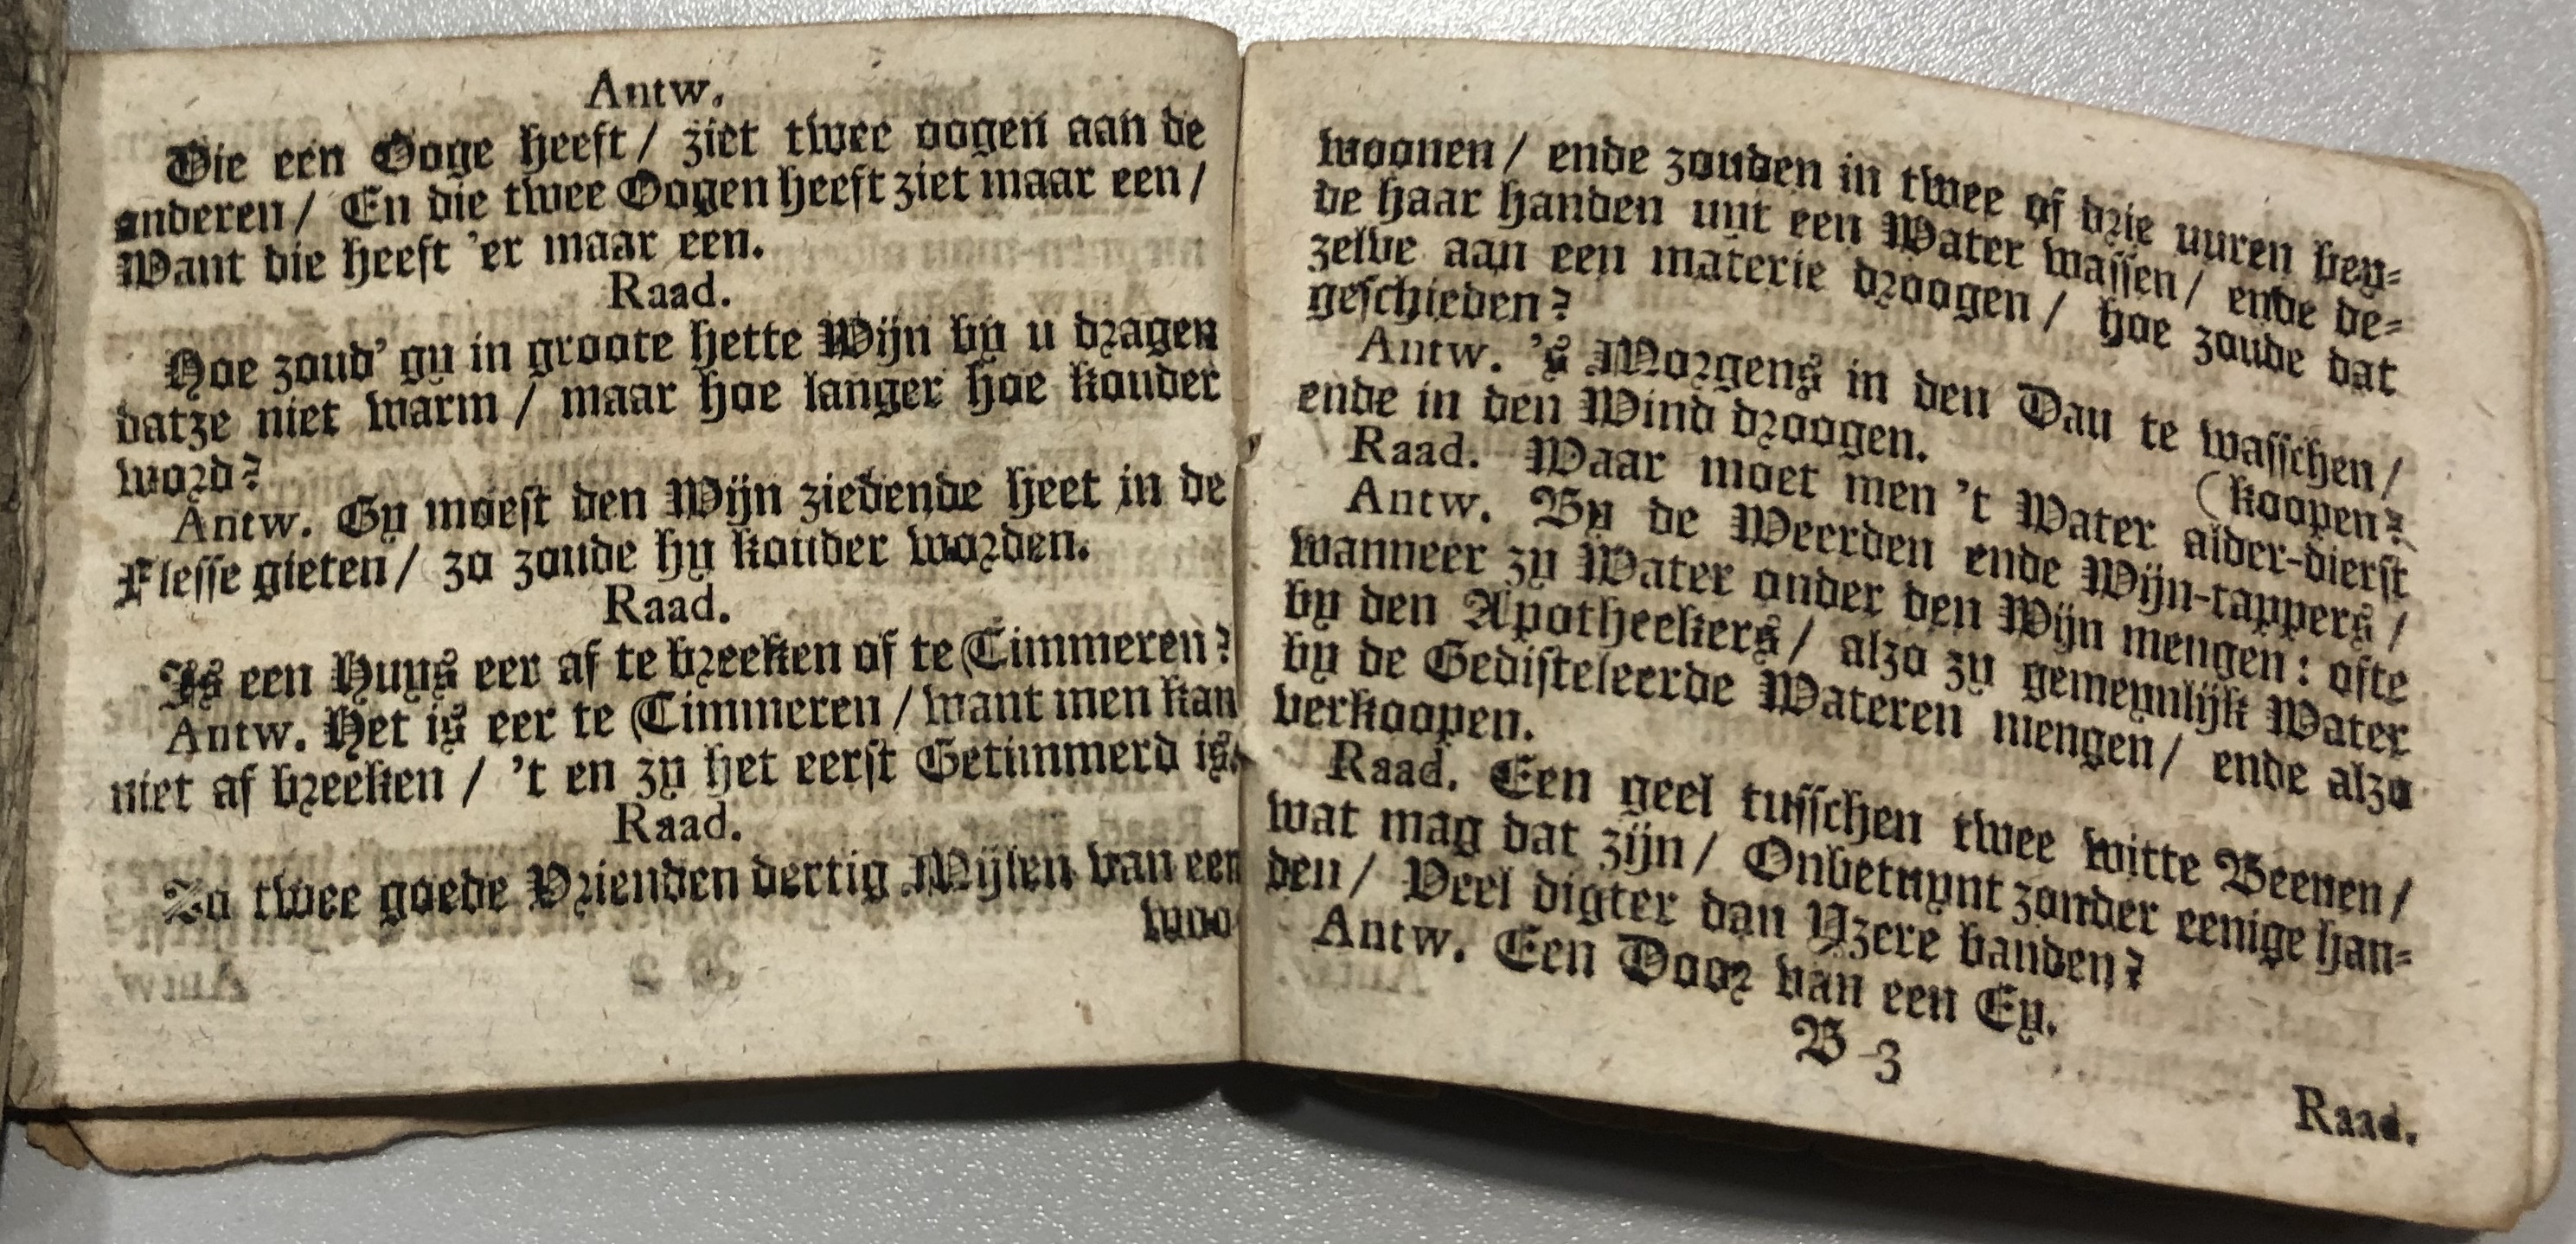 Antw.
Die een Ooge heeft / ziet twee oogen aan de
anderen / En die twee Oogen heeft ziet maar een /
Want die heeft 'er maar een.
Raad.
Hoe zoud' gy in groote hette Wijn by u dragen
datze niet warm / maar hoe langer hoe kouder
word?
Antw. Gy moest den Wijn ziedende heet in de
Flesse gieten / zo zoude hy kouder worden.
Raad.
Is een Huys eer af te breeken of te Timmeren?
Antw. Het is eer te Timmeren / want men kan
niet af breeken / 't en zy het eerst Getimmerd is.
Raad.
Zo twee goede Vrienden dertig Mijlen van een
woo
woonen / ende zouden in twee of drie uuren bey-
de haar handen uyt een Water wassen / ende de-
zelve aan een materie droogen / hoe zoude dat
geschieden?
Antw. 's Morgens in den Dau te wasschen /
ende in den Wind droogen.
(koopen?
Raad. Waar moet men 't Water alder-dierst
Antw. By de Weerden ende Wijn-tappers /
wanneer zy Water onder den Wijn mengen: ofte
by den Apotheekers / alzo zy gemeynlijk Water
by de Gedisteleerde Wateren mengen / ende alzo
verkoopen.
Raad. Een geel tusschen twee witte Beenen /
wat mag dat zijn / Onbetuynt zonder eenige han-
den / Veel digter dan Yzere banden?
Antw. Een Door van een Ey.
B 3
Raad.